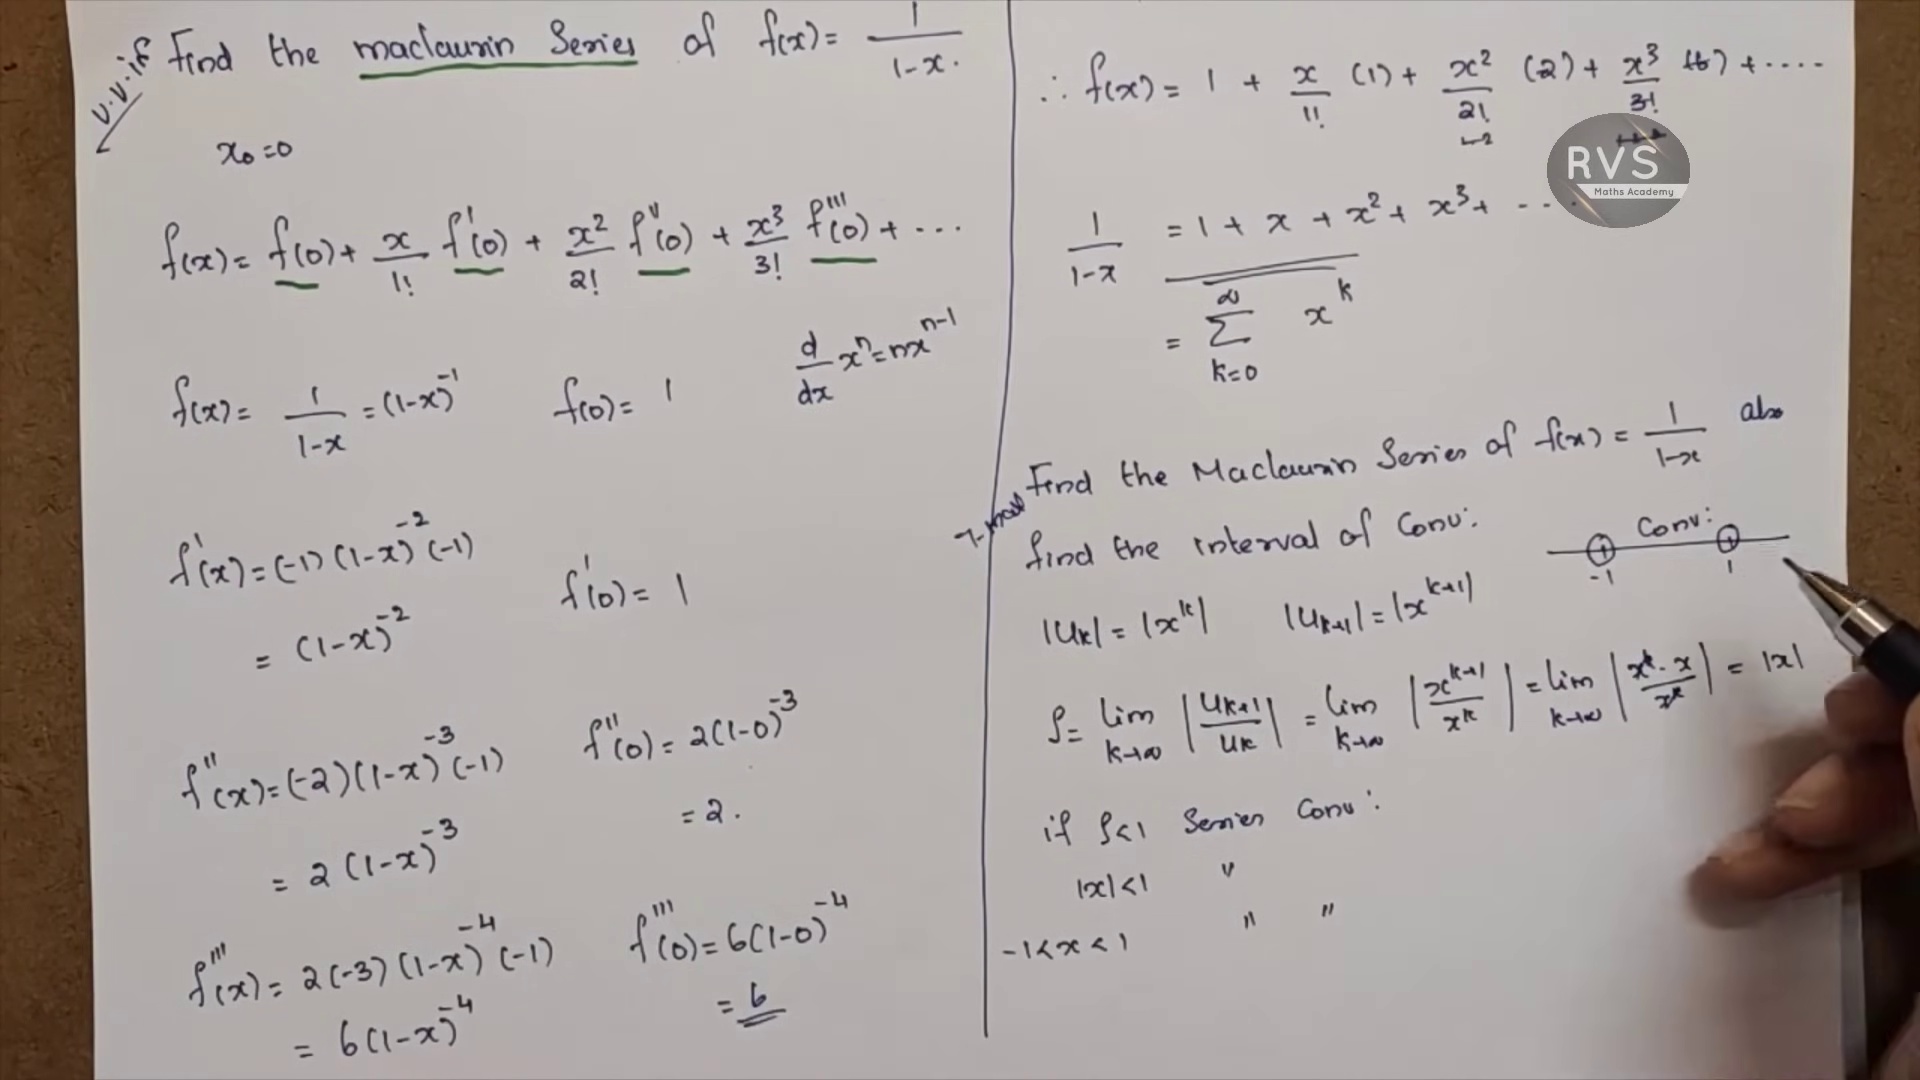 v.v.if
Find the maclaurin Series of f(x) = 1/1-x.
x₀=0
f(x) = f(0) + x/1! f'(0) + x²/2! f''(0) + x³/3! f'''(0) + ...
d/dx xⁿ = nxⁿ⁻¹
f(x) = 1/1-x = (1-x)⁻¹ f(0) = 1
f'(x) = (-1) (1-x)⁻² (-1)
= (1-x)⁻² f'(0) = 1
f''(x) = (-2) (1-x)⁻³ (-1) f''(0) = 2(1-0)⁻³
= 2 (1-x)⁻³ = 2.
f'''(x) = 2(-3) (1-x)⁻⁴ (-1) f'''(0) = 6(1-0)⁻⁴
= 6(1-x)⁻⁴ = 6
∴ f(x) = 1 + x/1! (1) + x²/2! (2) + x³/3! (6) + ....
RVS
Maths Academy
1/1-x = 1 + x + x² + x³ + ...
= ∑ k=0 ∞ xᵏ
Find the Maclaurin Series of f(x) = 1/1-x also
find the interval of Conv:
Conv:
-1 1
|uₖ| = |xᵏ| |uₖ₊₁| = |xᵏ⁺¹|
ρ = lim k→∞ |uₖ₊₁/uₖ| = lim k→∞ |xᵏ⁺¹/xᵏ| = lim k→∞ |xᵏ·x/xᵏ| = |x|
if ρ<1 Series Conv:
|x|<1 "
-1<x<1 " "